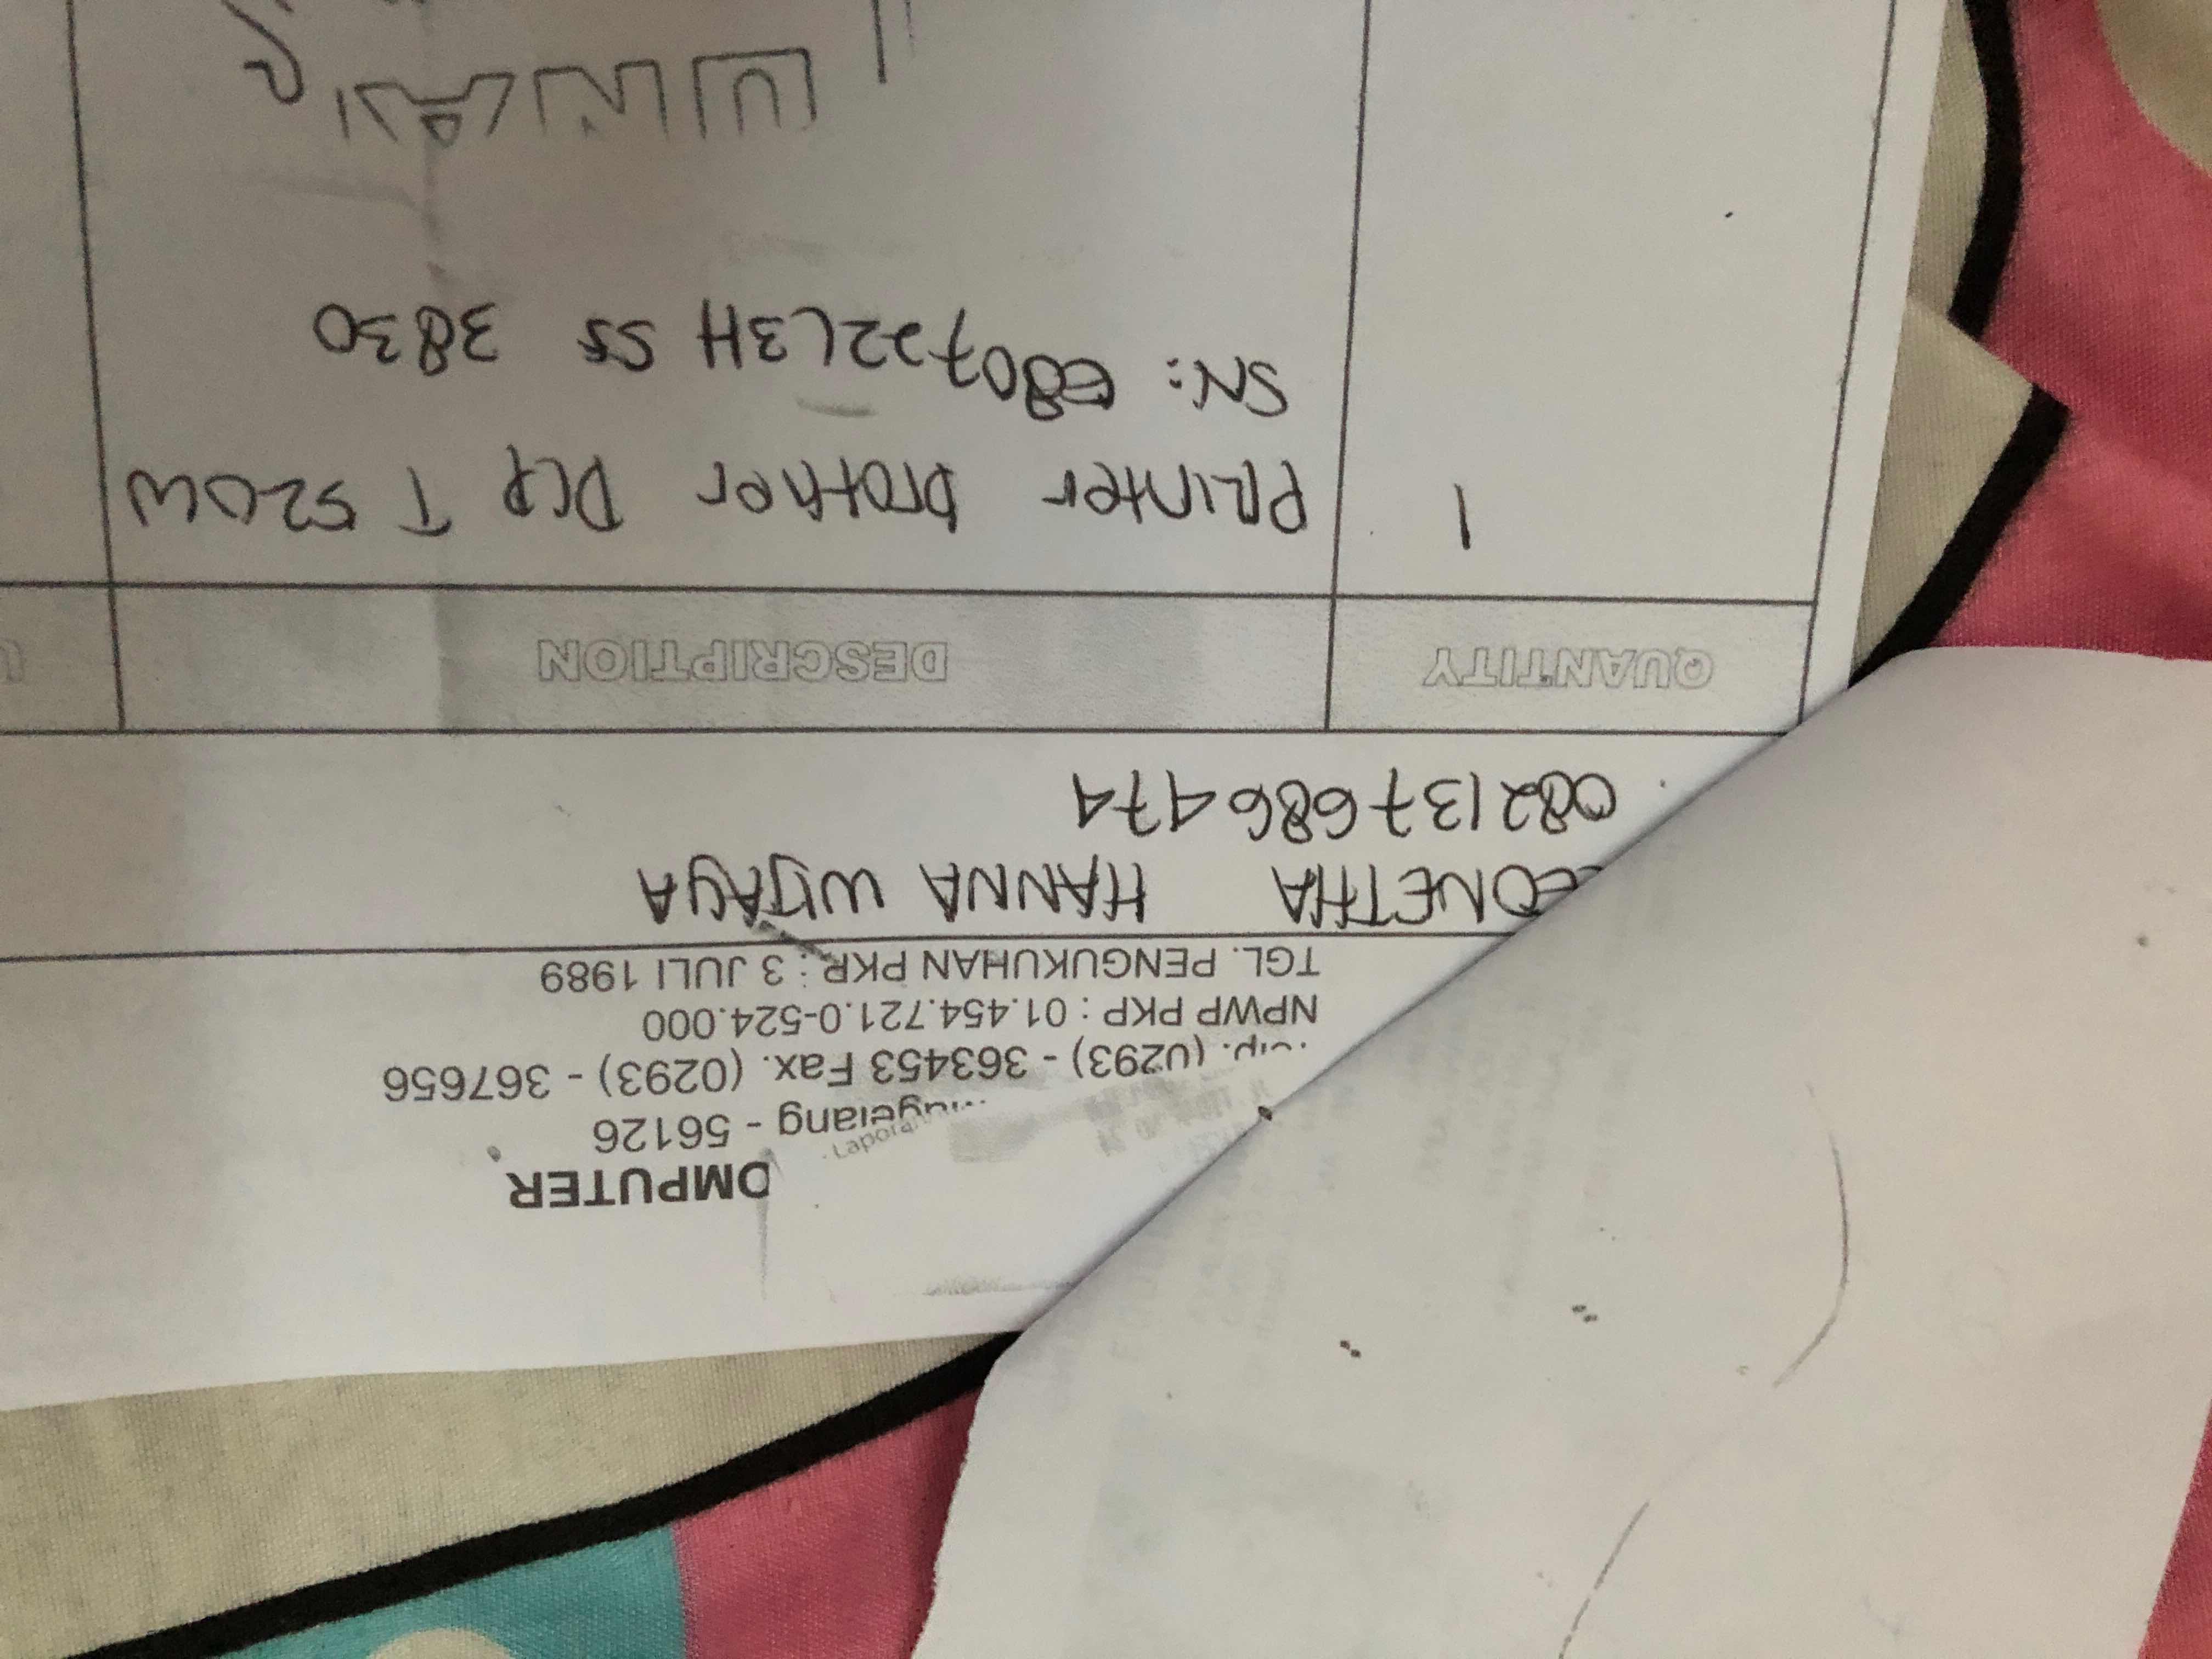 OMPUTER
Magelang - 56126
Telp. (0293) - 363453 Fax. (0293) - 367656
NPWP PKP : 01.454.721.0-524.000
TGL. PENGUKUHAN PKP : 3 JULI 1989
EONETHA HANNA WIJAYA
082137686474
QUANTITY DESCRIPTION
1 Printer brother DCP T 520W
SN: E80722L3H 3830